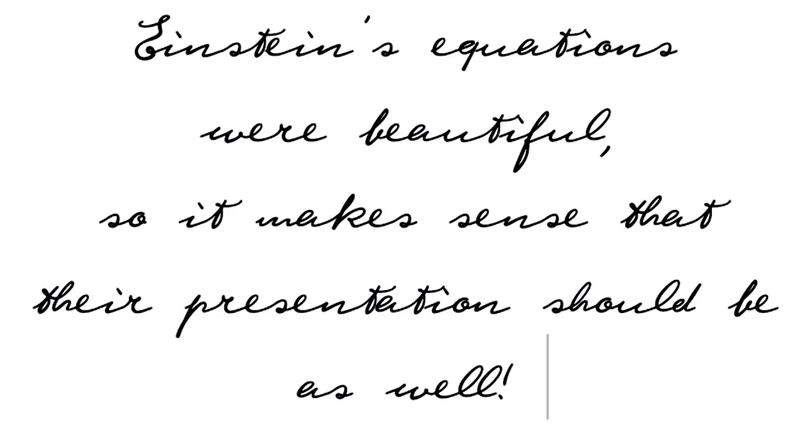 Einstein's equations
were beautiful,
so it makes sense that
their presentation should be
as well!